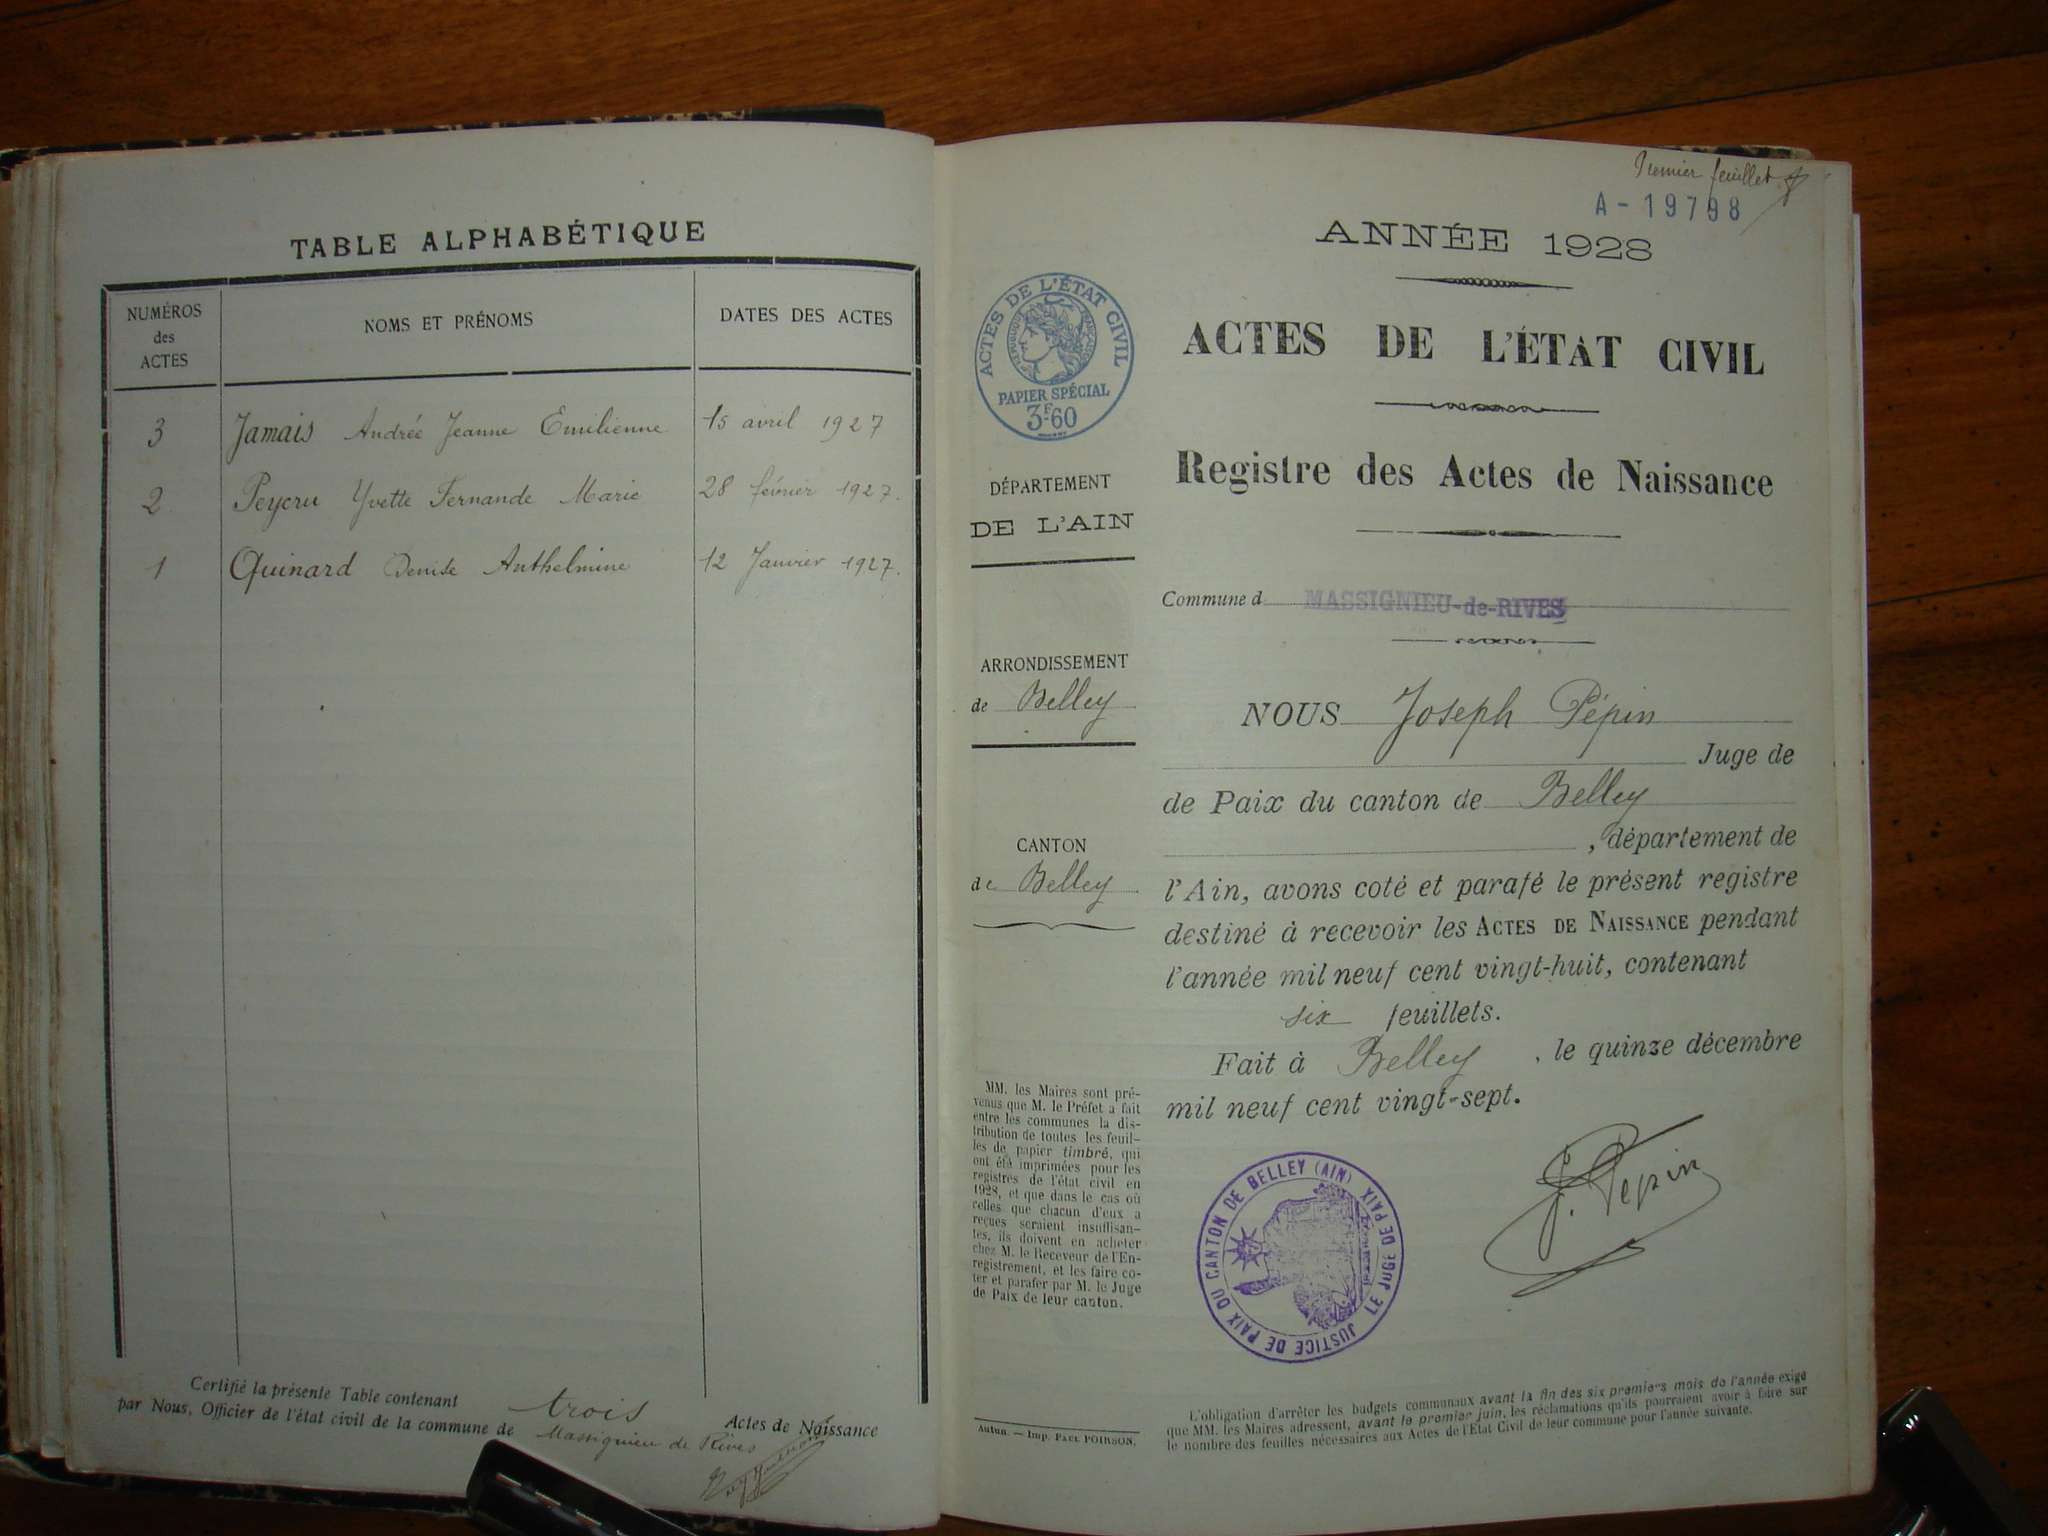 TABLE ALPHABÉTIQUE
NUMÉROS
des
ACTES
NOMS ET PRÉNOMS
DATES DES ACTES
3 Jamais Andrée Jeanne Emilienne 15 avril 1927
2 Peycru Yvette Fernande Marie 28 février 1927.
1 Quinard Denise Anthelmine 12 Janvier 1927.
Certifié la présente Table contenant trois Actes de Naissance
par Nous, Officier de l'état civil de la commune de Massignieu de Rives
Premier feuillet
A-19798
ANNÉE 1928
ACTES DE L'ÉTAT CIVIL
RÉPUBLIQUE FRANÇAISE
PAPIER SPÉCIAL
3F.60
ACTES DE L'ÉTAT CIVIL
Registre des Actes de Naissance
DÉPARTEMENT
DE L'AIN
Commune d MASSIGNIEU-de-RIVES
ARRONDISSEMENT
de Belley
CANTON
de Belley
NOUS Joseph Pépin
Juge de
de Paix du canton de Belley
, département de
l'Ain, avons coté et parafé le présent registre
destiné à recevoir les ACTES DE NAISSANCE pendant
l'année mil neuf cent vingt-huit, contenant
six feuillets.
Fait à Belley, le quinze décembre
mil neuf cent vingt-sept.
J. Pepin
JUSTICE DE PAIX DU CANTON DE BELLEY (AIN)
LE JUGE DE PAIX
MM. les Maires sont pré-
venus que M. le Préfet a fait
entre les communes la dis-
tribution de toutes les feuil-
les de papier timbré, qui
ont été imprimées pour les
registres de l'état civil en
1928, et que dans le cas où
celles que chacun d'eux a
reçues seraient insuffisan-
tes, ils doivent en acheter
chez M. le Receveur de l'En-
registrement, et les faire co-
ter et parafer par M. le Juge
de Paix de leur canton.
Autun. — Imp. PAUL POIRSON.
L'obligation d'arrêter les budgets communaux avant la fin des six premiers mois de l'année exige
que MM. les Maires adressent, avant le premier juin, les réclamations qu'ils pourraient avoir à faire sur
le nombre des feuilles nécessaires aux Actes de l'Etat Civil de leur commune pour l'année suivante.